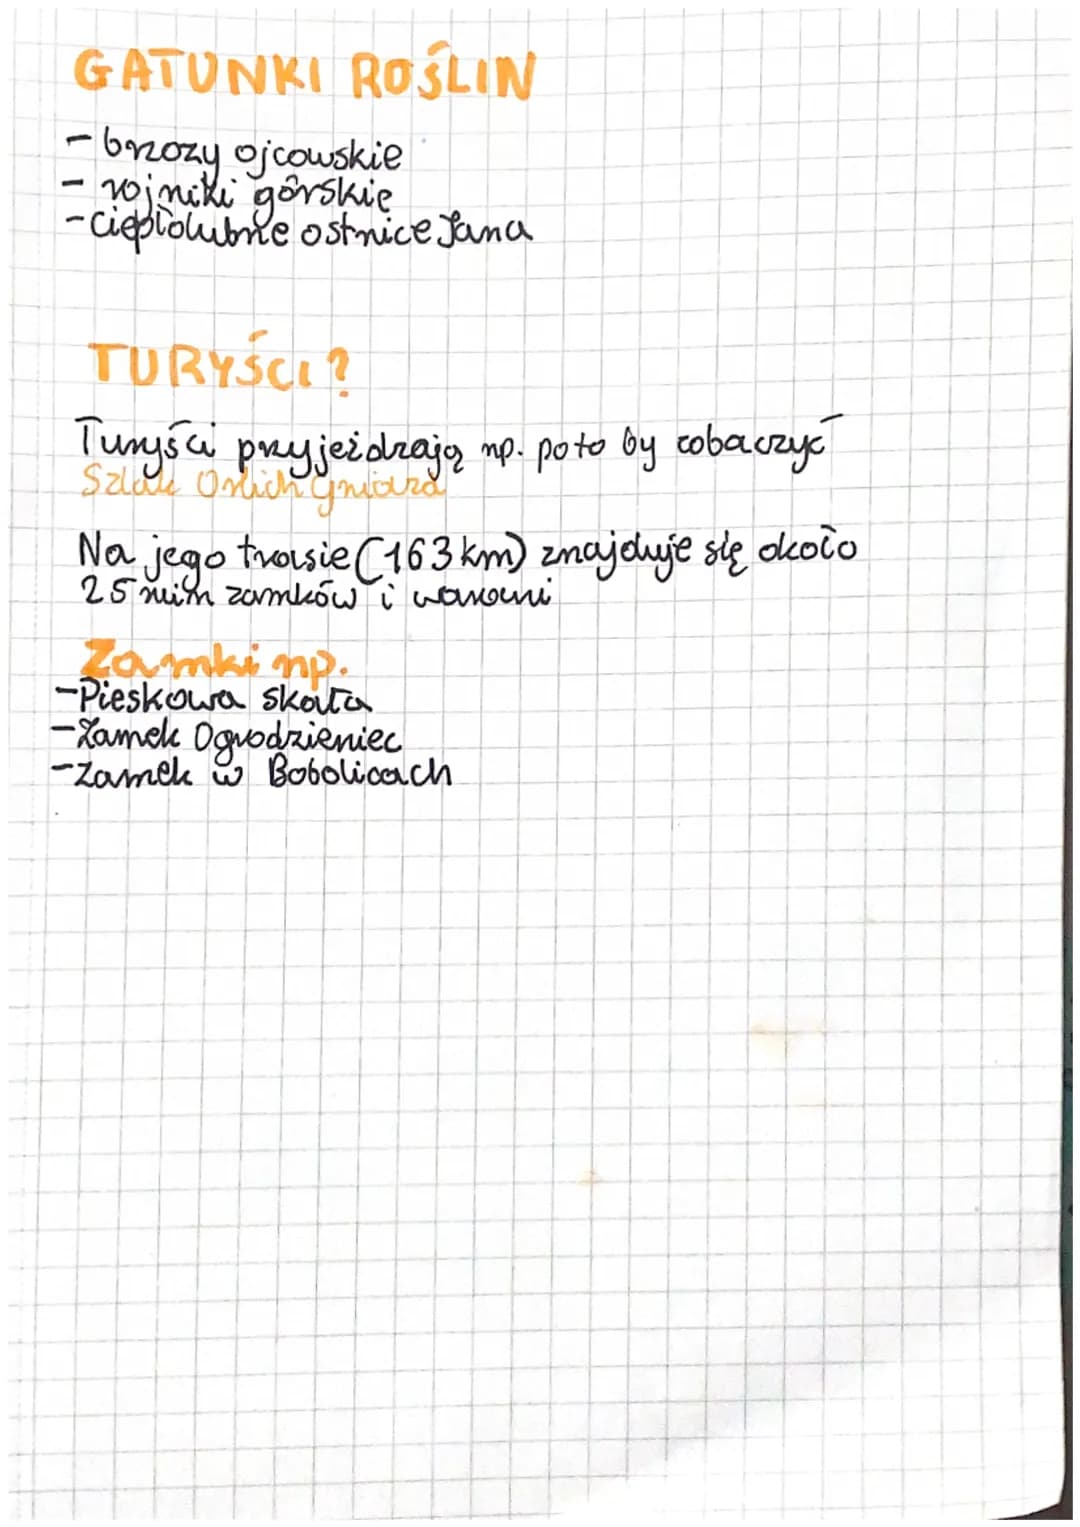 GATUNKI ROŚLIN
- brzozy ojcowskie
- rojniki górskie
- ciepłolubne ostnice Jana
TURYŚCI?
Turyści przyjeżdzają np. poto by zobaczyć
Szlak Orlich Gniazd
Na jego trasie (163 km) znajduje się około
25 ruin zamków i warowni
Zamki np.
- Pieskowa skała
- Zamek Ogrodzieniec
- Zamek w Bobolicach